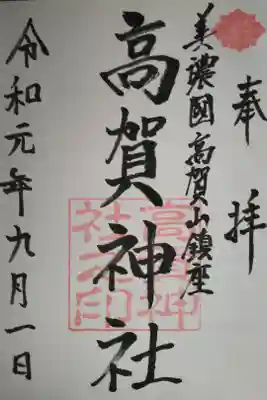 奉拝
美濃國高賀山鎮座
高賀神社
高賀神社之印
令和元年九月一日